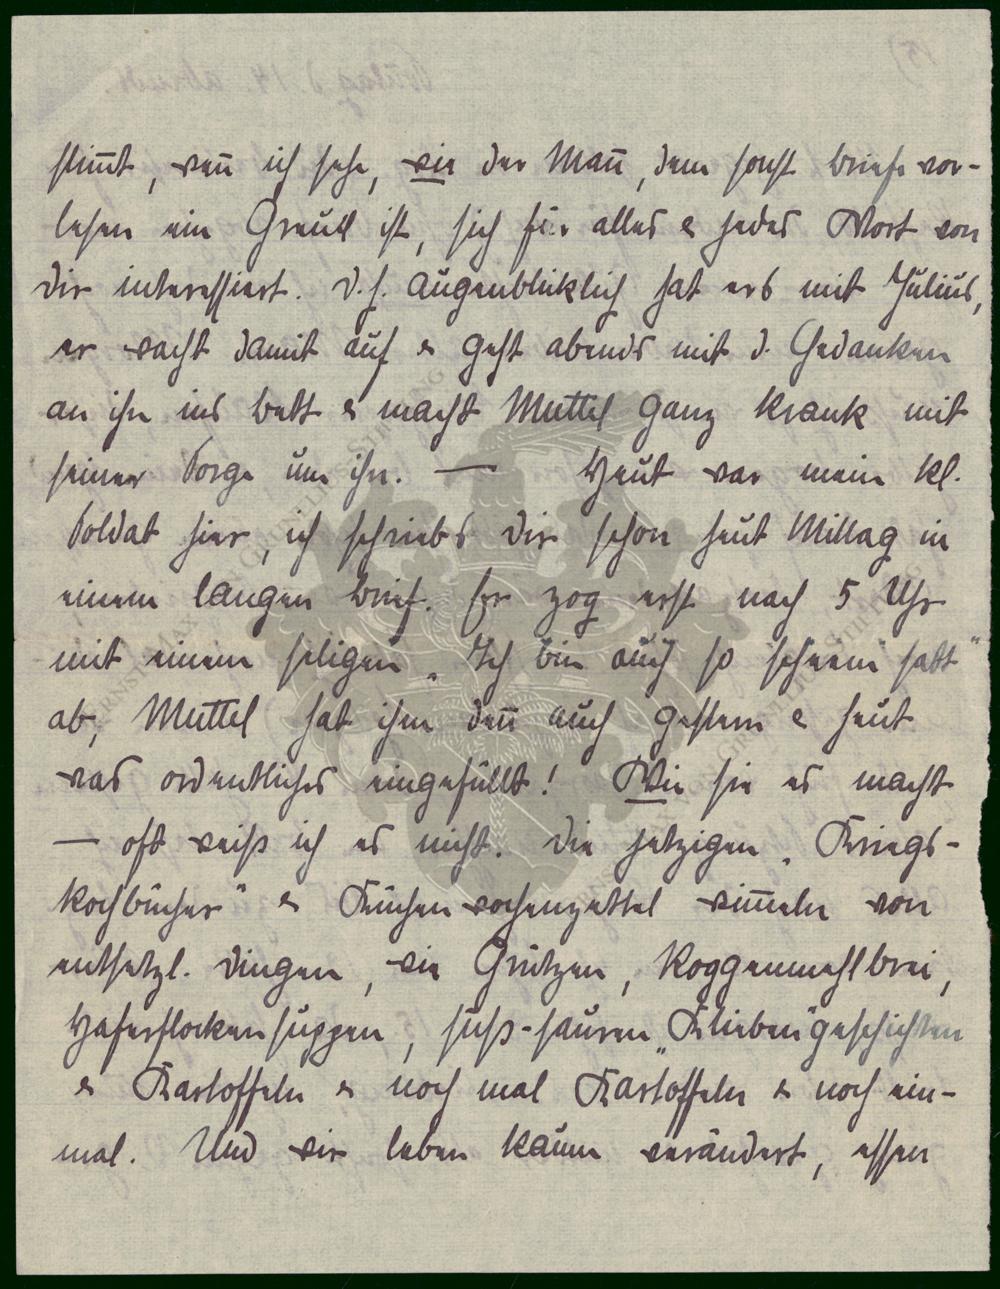 stim̄t, wen̄ ich sehe, wie der Man̄, dem sonst Briefe vor-
lesen ein Greuel ist, sich für alles & jedes Wort von
Dir interessiert. D. h. augenblicklich hat ers mit Julius,
er wacht damit auf & geht abends mit d. Gedanken
an ihn ins Bett & macht Muttel ganz krank mit
seiner Sorge um ihn. — Heut war mein kl.
Soldat hier, ich schriebs Dir schon heut Mittag in
einem langen Brief. Er zog erst nach 5 Uhr
mit einem seligen „Ich bin auch so scheen satt"
ab, Muttel hat ihm den̄ auch gestern & heut
was ordentliches eingefüllt! Wie sie es macht
— oft weiß ich es nicht. Die jetzigen „Kriegs-
kochbücher" & Küchenwochenzettel wim̄eln von
entsetzl. Dingen, wie Grützen, Roggenmehlbrei,
Haferflockensuppen, süß-sauren „Klieben"geschichten
& Kartoffeln & noch mal Kartoffeln & noch ein-
mal. Und wir leben kaum verändert, essen